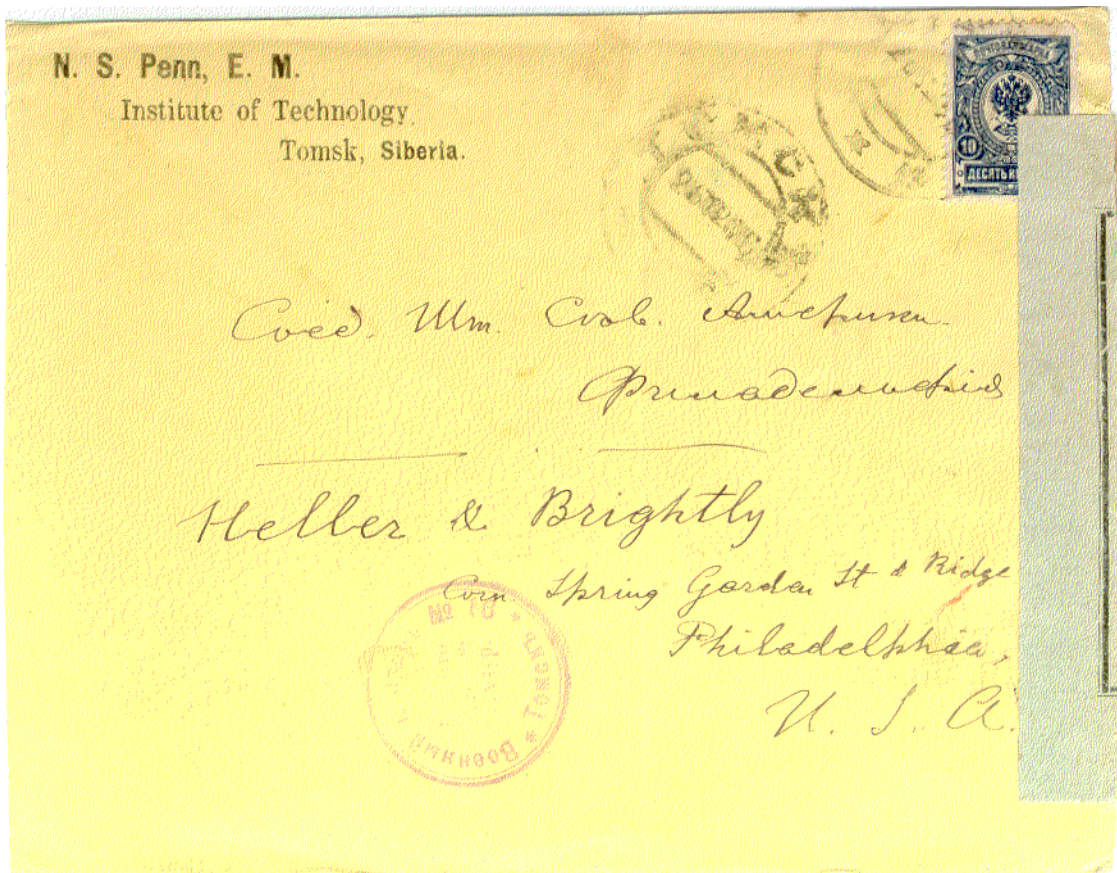 N. S. Penn, E. M.
Institute of Technology
Tomsk, Siberia.
ПОЧТОВАЯ МАРКА
10
ДЕСЯТЬ
Соед. Шт. Сѣв. Америки.
Филадельфія
Heller & Brightly
Corn. Spring Garden St & Ridge
Philadelphia,
U. S. A.
№ 16
* ТОМСКЪ * ВОЕННЫЙ